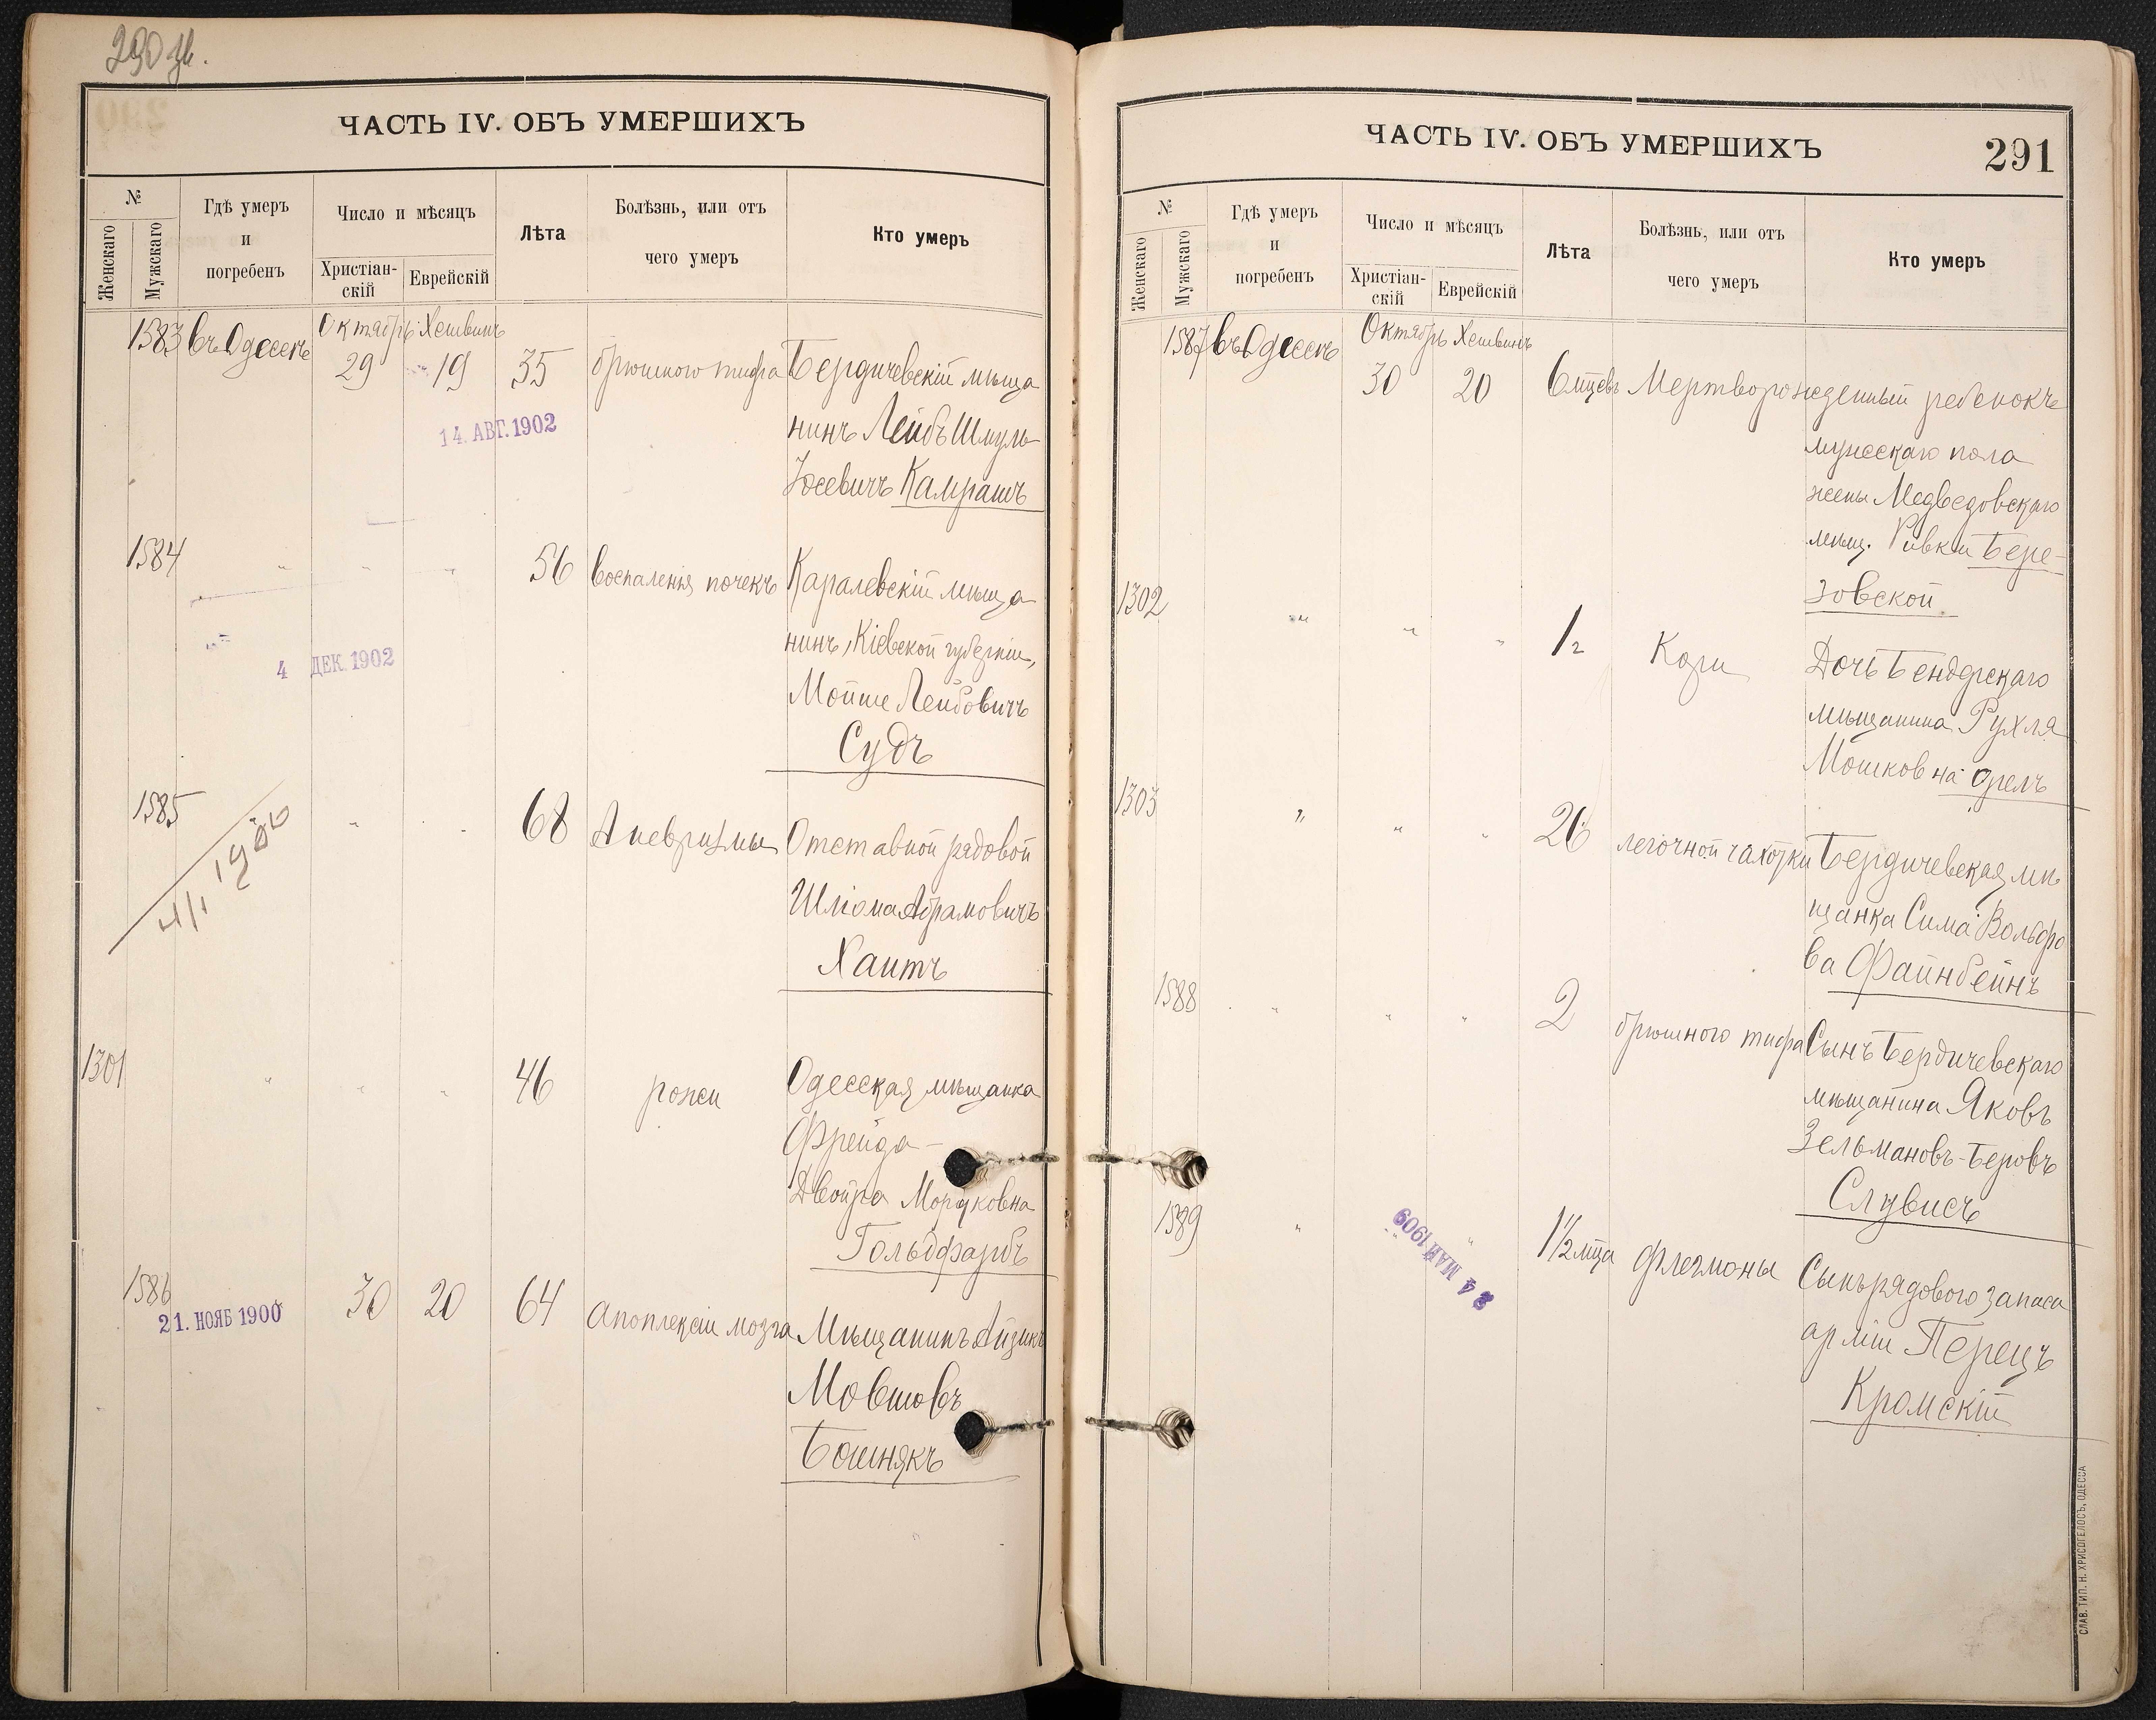 290 зв.
ЧАСТЬ IV. ОБЪ УМЕРШИХЪ
№
Женскаго
Мужскаго
Гдѣ умеръ
и
погребенъ
Число и мѣсяцъ
Христіан-
скій
Еврейскій
Лѣта
Болѣзнь, или отъ
чего умеръ
Кто умеръ
1583 въ Одессѣ Октябрь Хешвинъ
29 19 35 брюшного тифа Бердичевскій мѣща
14. АВГ. 1902
нинъ Лейбъ Шмуль-
Іосевичъ Камрашъ
1584 " " " 56 воспаленія почекъ Каралевскій мѣща
нинъ, Кіевской губерніи,
4 ДЕК. 1902
Мойше Лейбовичъ
Судъ
1585 " " 68 Аневризмы Отставной рядовой
4/I 1906
Шліома Абрамовичъ
Хаитъ
1301 " " " 46 рожи Одесская мѣщанка
Фрейда-
Двойра Мордковна
Гольдфарбъ
1586 30 20 64 апоплексіи мозга Мѣщанинъ Айзикъ
21. НОЯБ 1900
Мовшовъ
Бошнякъ
ЧАСТЬ IV. ОБЪ УМЕРШИХЪ
291
№
Женскаго
Мужскаго
Гдѣ умеръ
и
погребенъ
Число и мѣсяцъ
Христіан-
скій
Еврейскій
Лѣта
Болѣзнь, или отъ
чего умеръ
Кто умеръ
1587 въ Одессѣ Октябрь Хешвинъ
30 20 6 мцевъ Мертворожденный ребенокъ
мужескаго пола
жены Медведовскаго
мѣщ. Ривки Бере-
зовской
1302 " " " 1/2 Кори Дочь Бендерскаго
мѣщанина Рухля
Мошковна Орелъ
1303 " " " 26 легочной чахотки Бердичевская мѣ
щанка Сима Вольфо
ва Файнбейнъ
1588 " " " 2 брюшного тифа Сынъ Бердичевскаго
мѣщанина Яковъ
Зельмановъ-Беровъ
Слувисъ
1589 " " " 1 1/2 мца флегмоны Сынъ рядового запаса
24 МАЙ 1909
арміи Перецъ
Кромскій
СЛАВ. ТИП. Н. ХРИСОГЕЛОСЪ, ОДЕССА